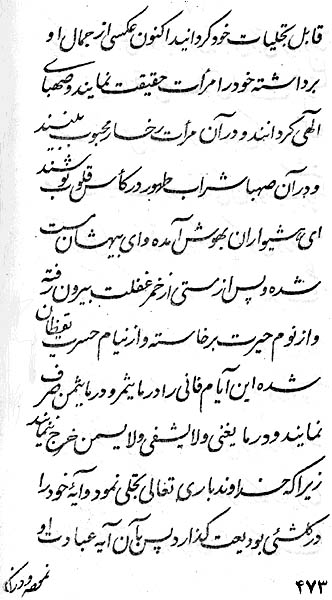 قابل تجلیات خود کردانید اکنون عکسی از جمال او
برداشته خود را مرآت حقیقت نمایند و صهبای
الهی کردانند و در آن مرآت رخسار محبوب بینند
و در آن صهبا شراب طهور در کأس قلوب نوشند
ای هشیواران بهوش آمده و ای بیهشان مست
شده و پس از مستی از خمر غفلت بیرون رفته
و از نوم حیرت برخاسته و از نیام حسرت یقظان
شده این آیام فانی را در ما یثمر و در ما یثمن صرف
نمایند و در ما یغنی و لا یشفی و لا یسمن خرج ننمایند
زیرا که خداوند باری تعالی تجلی نمود و آیهٔ خود را
در کلشئی بودیعت گذارد پس بآن آیه عبادت او
۴۷۳